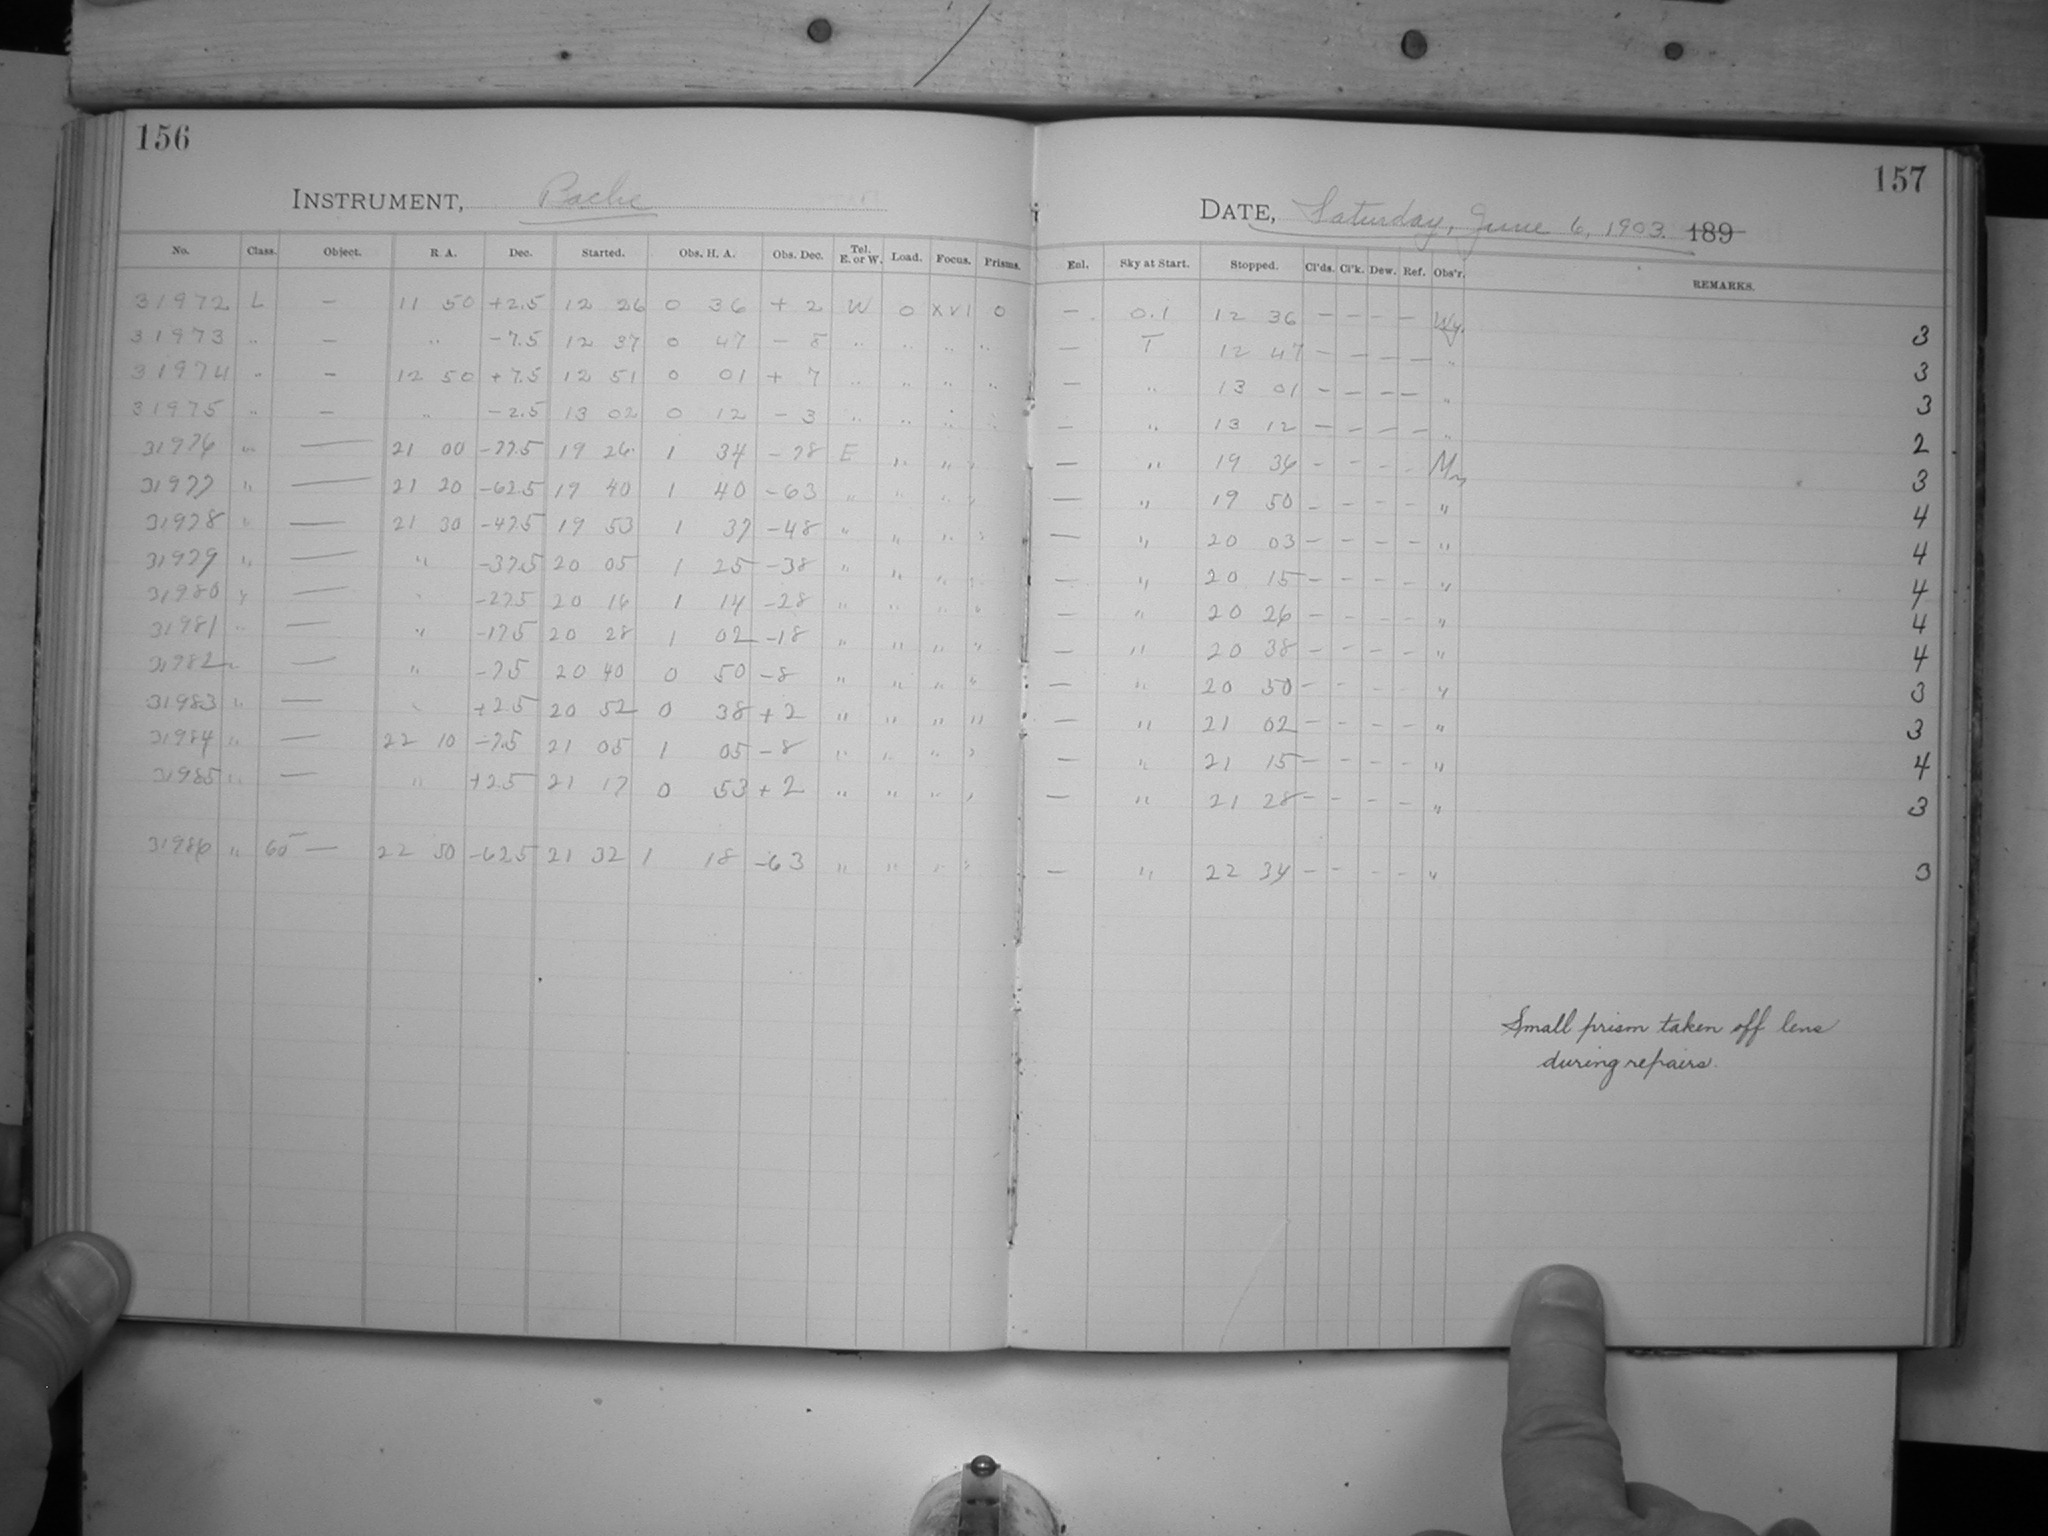 156
INSTRUMENT, Bache
No. Class. Object. R. A. Dec. Started. Obs. H. A. Obs. Dec. Tel. E. or W. Load. Focus. Prisms.
31972 L — 11 50 +2.5 12 26 0 36 + 2 W 0 XVI 0
31973 " — " -7.5 12 37 0 47 - 8 " " " "
31974 " — 12 50 +7.5 12 51 0 01 + 7 " " " "
31975 " — " -2.5 13 02 0 12 - 3 " " " "
31976 " — 21 00 -77.5 19 26 1 34 -78 E " " "
31977 " — 21 20 -62.5 19 40 1 40 -63 " " " "
31978 " — 21 30 -47.5 19 53 1 37 -48 " " " "
31979 " — " -37.5 20 05 1 25 -38 " " " "
31980 " — " -27.5 20 16 1 14 -28 " " " "
31981 " — " -17.5 20 28 1 02 -18 " " " "
31982 " — " -7.5 20 40 0 50 -8 " " " "
31983 " — " +2.5 20 52 0 38 +2 " " " "
31984 " — 22 10 -7.5 21 05 1 05 -8 " " " "
31985 " — " +2.5 21 17 0 53 +2 " " " "
31986 " 60m — 22 50 -62.5 21 32 1 18 -63 " " " "
157
DATE, Saturday, June 6, 1903. 189
Enl. Sky at Start. Stopped. Cl'ds. Cl'k. Dew. Ref. Obs'r. REMARKS.
— 0.1 12 36 — — — — Wy. 3
— T 12 47 — — — — " 3
— " 13 01 — — — — " 3
— " 13 12 — — — — " 2
— " 19 36 — — — — 3
— " 19 50 — — — — " 4
— " 20 03 — — — — " 4
— " 20 15 — — — — " 4
— " 20 26 — — — — " 4
— " 20 38 — — — — " 4
— " 20 50 — — — — " 3
— " 21 02 — — — — " 3
— " 21 15 — — — — " 4
— " 21 28 — — — — " 3
— " 22 34 — — — — " 3
Small prism taken off lens
during repairs.